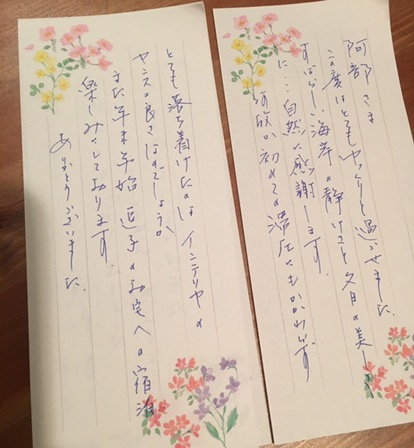 阿部さま
この度はとてもゆっくりと過ごせました。
すばらしい海岸の静けさと夕日の美しさ
に…自然に感謝します。
何故か初めての滞在にもかかわらず
とても落ち着けたのはインテリヤの
センスの良さなのでしょうか
また年末年始 逗子のお宅への宿泊
楽しみにしております。
ありがとうございました。